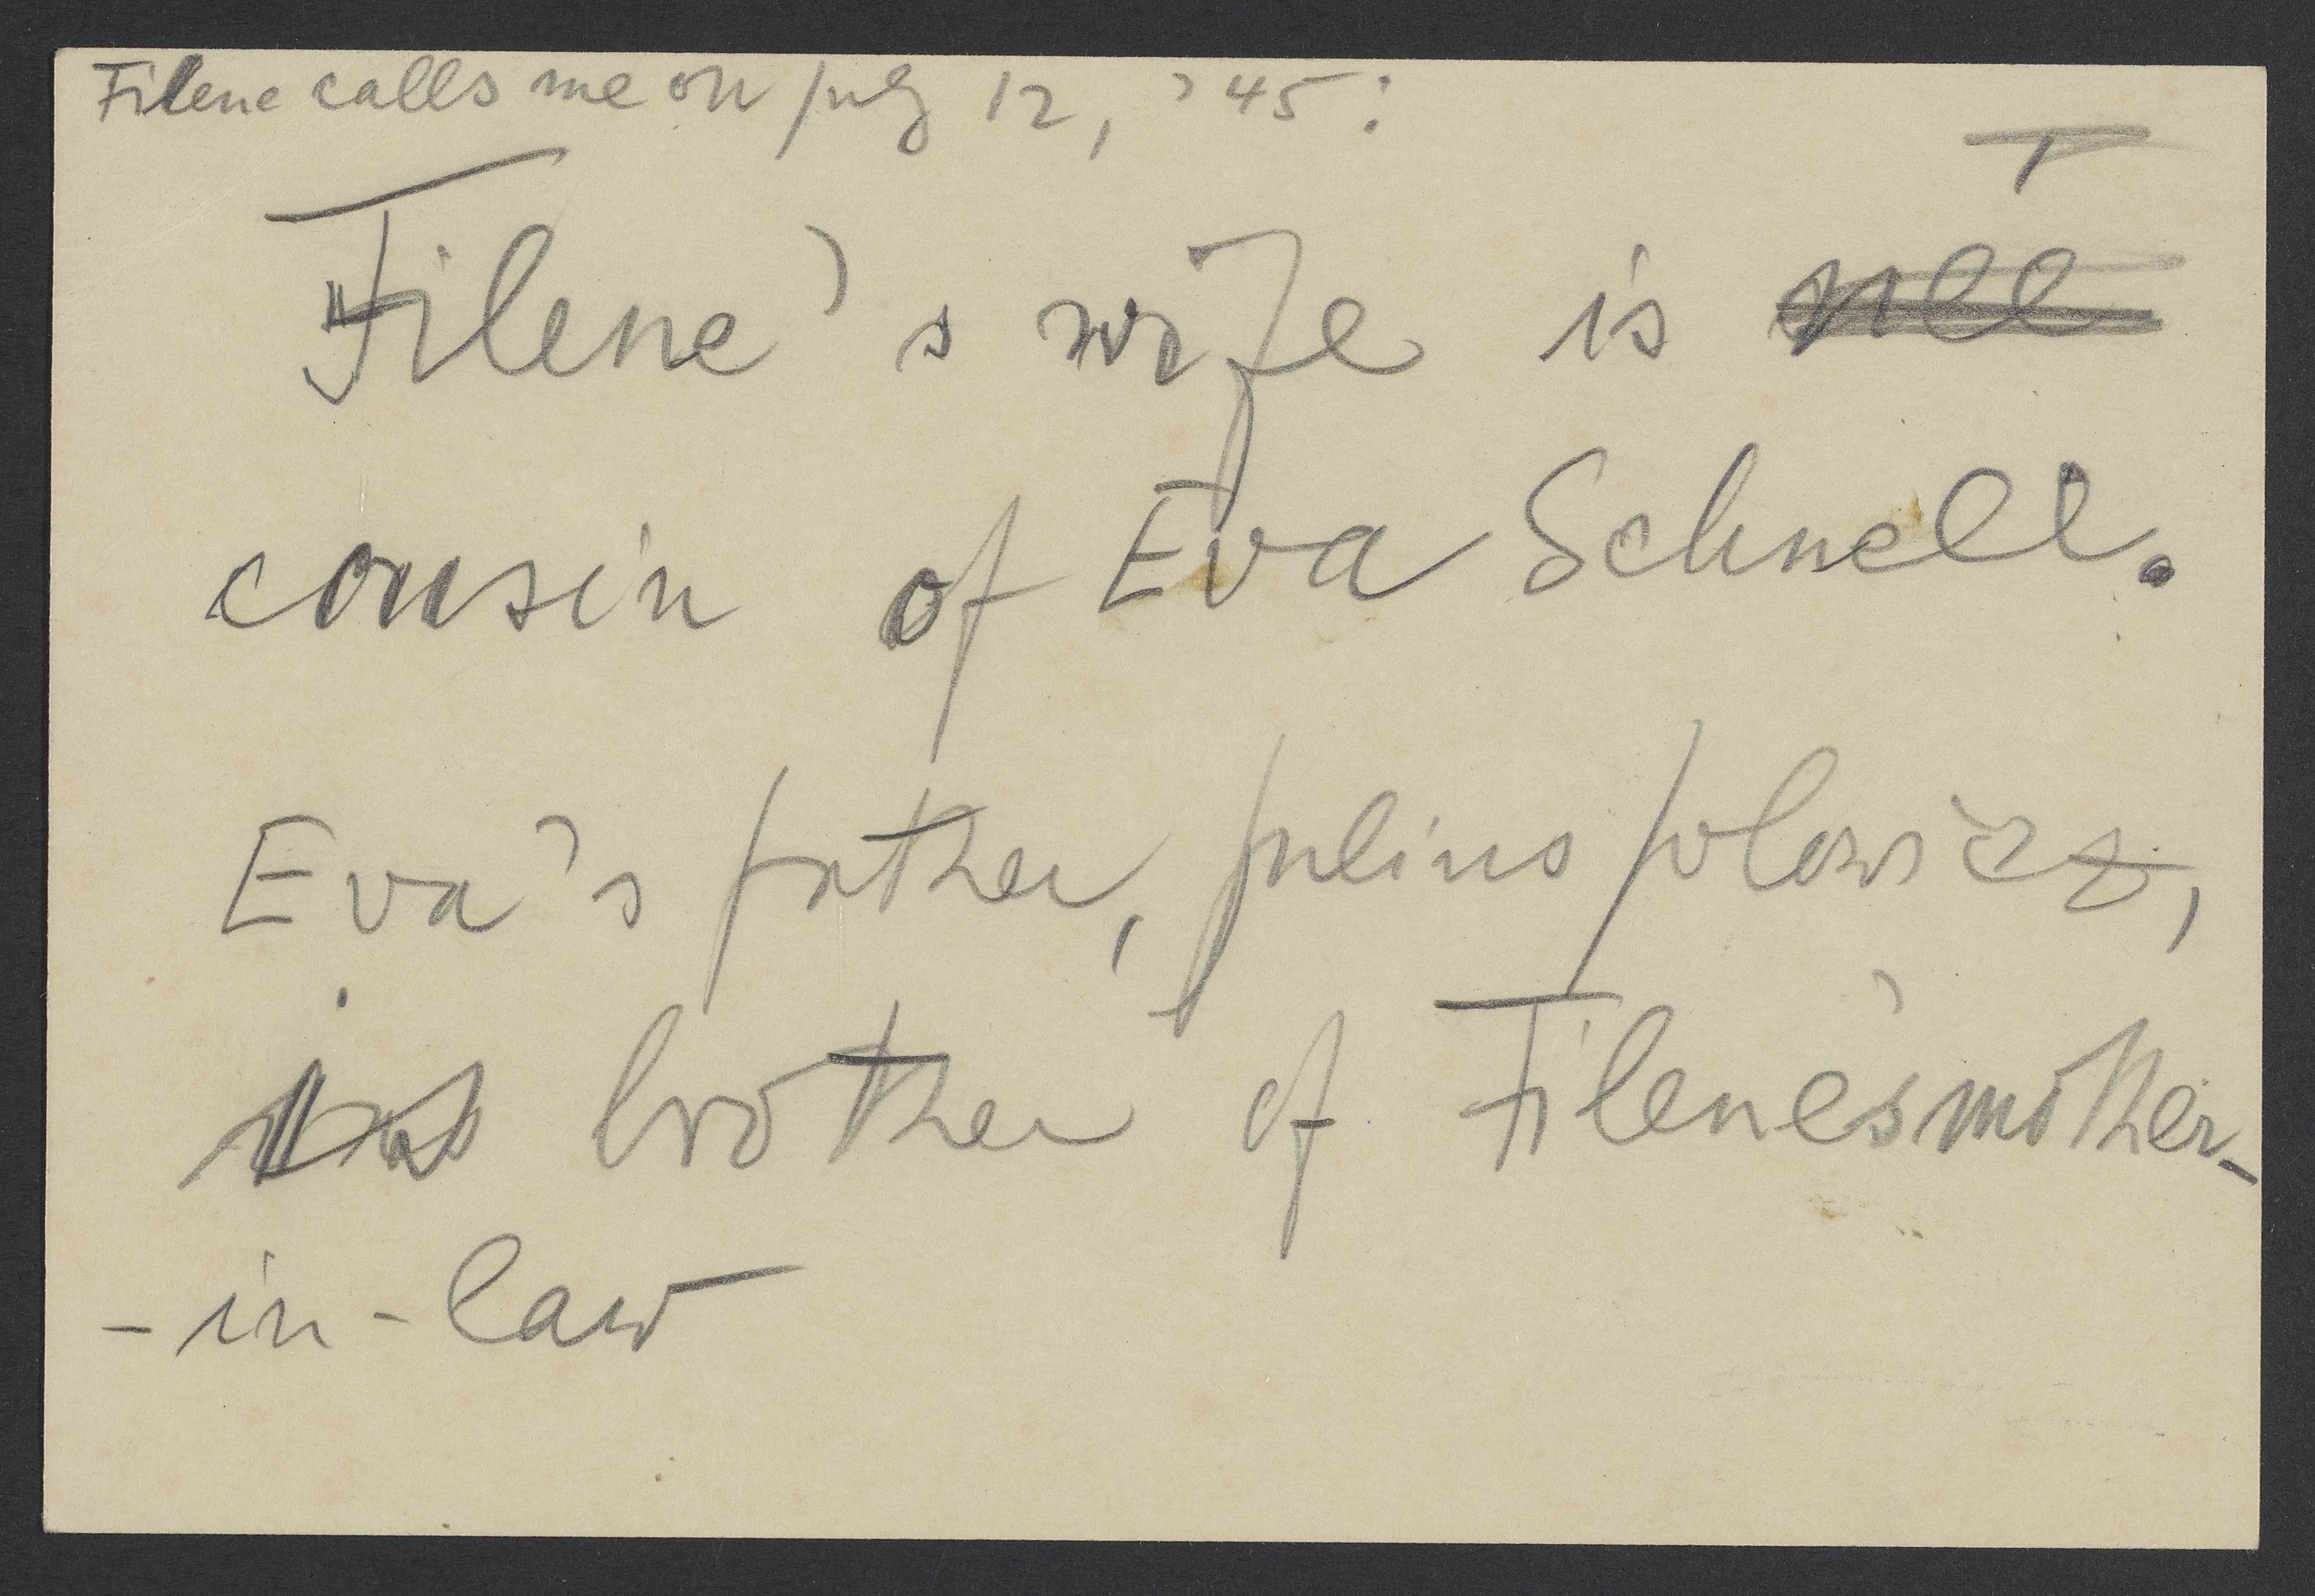 Filene calls me on july 12, '45:
Filene's wife is
cousin of Eva Schnell.
Eva's father, julius jolowicz,
is brother of Filene's mother-
-in-law